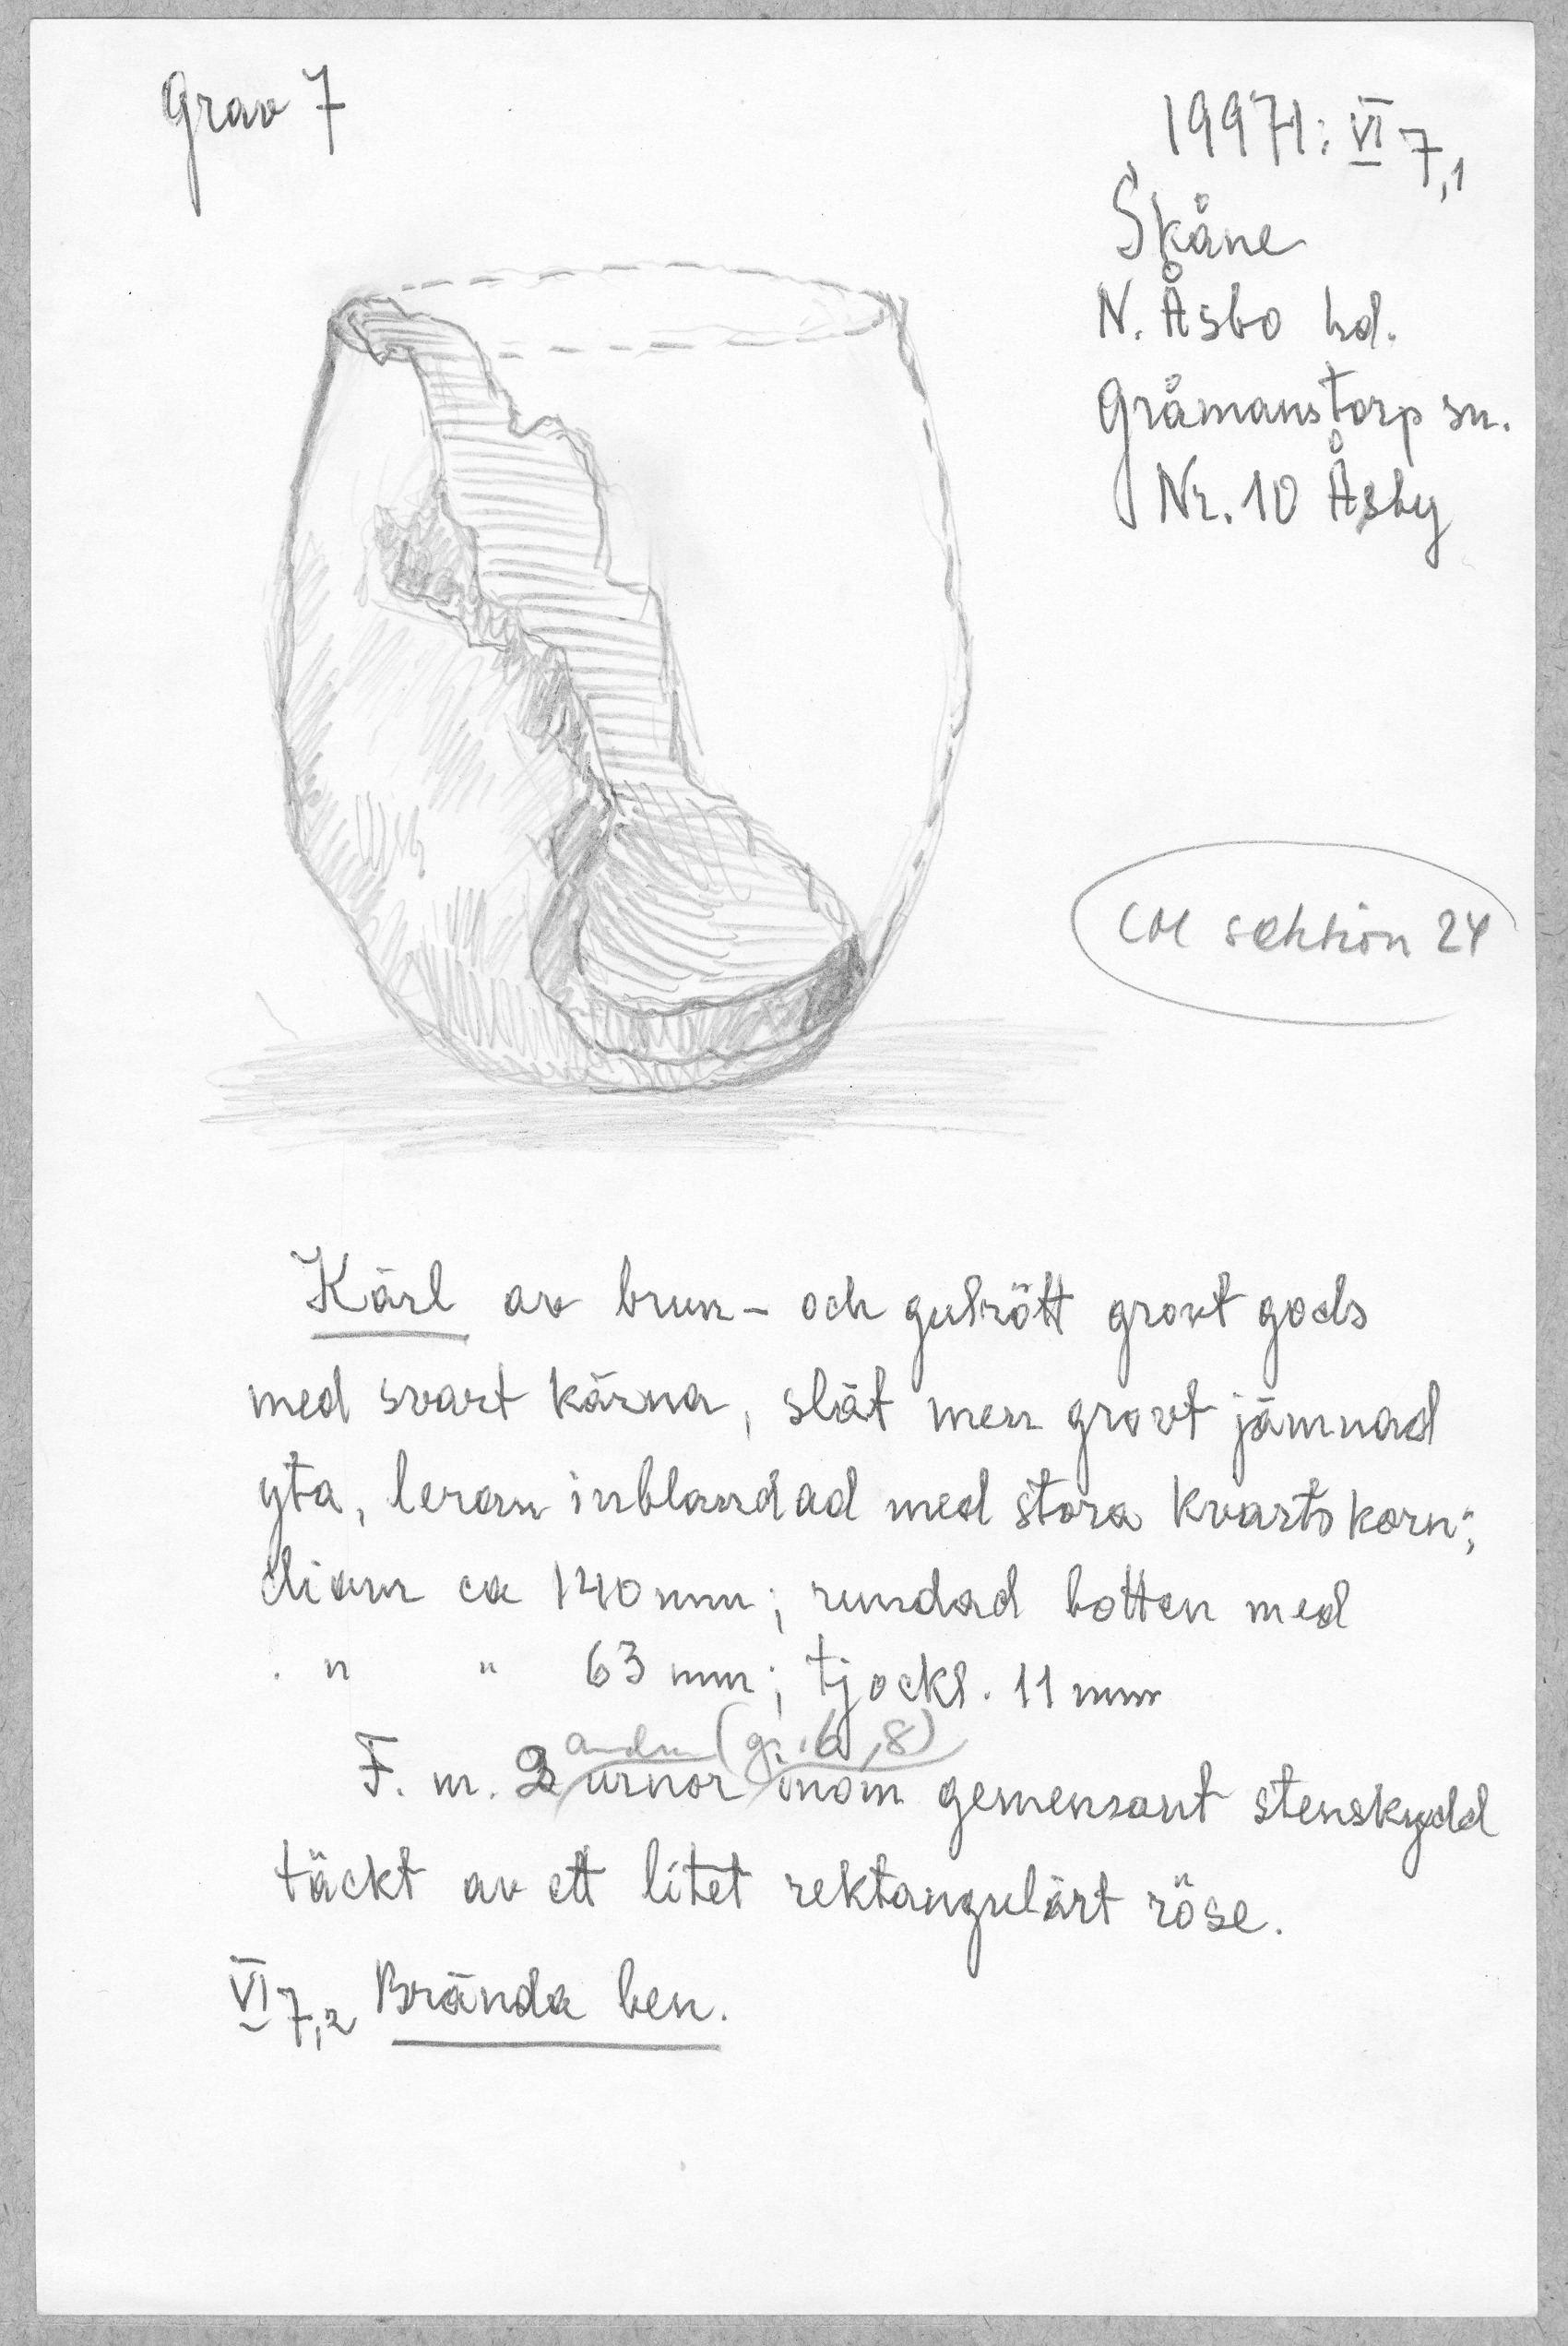 Grav 7
19971: VI 7,1
Skåne
N. Åsbo hd.
Gråmanstorp sn.
Nr. 10 Åsby
sektion 24
Kärl av brun- och gulrött grovt gods
med svart kärna, slät men grovt jämnad
yta, leran inblandad med stora kvartskorn;
diam ca 140 mm; rundad botten med
" " 63 mm; tjockl. 11 mm
andra (gr. 6, 8)
F. m. 2 urnor inom gemensamt stenskydd
täckt av ett litet rektangulärt röse.
VI 7,2 Brända ben.